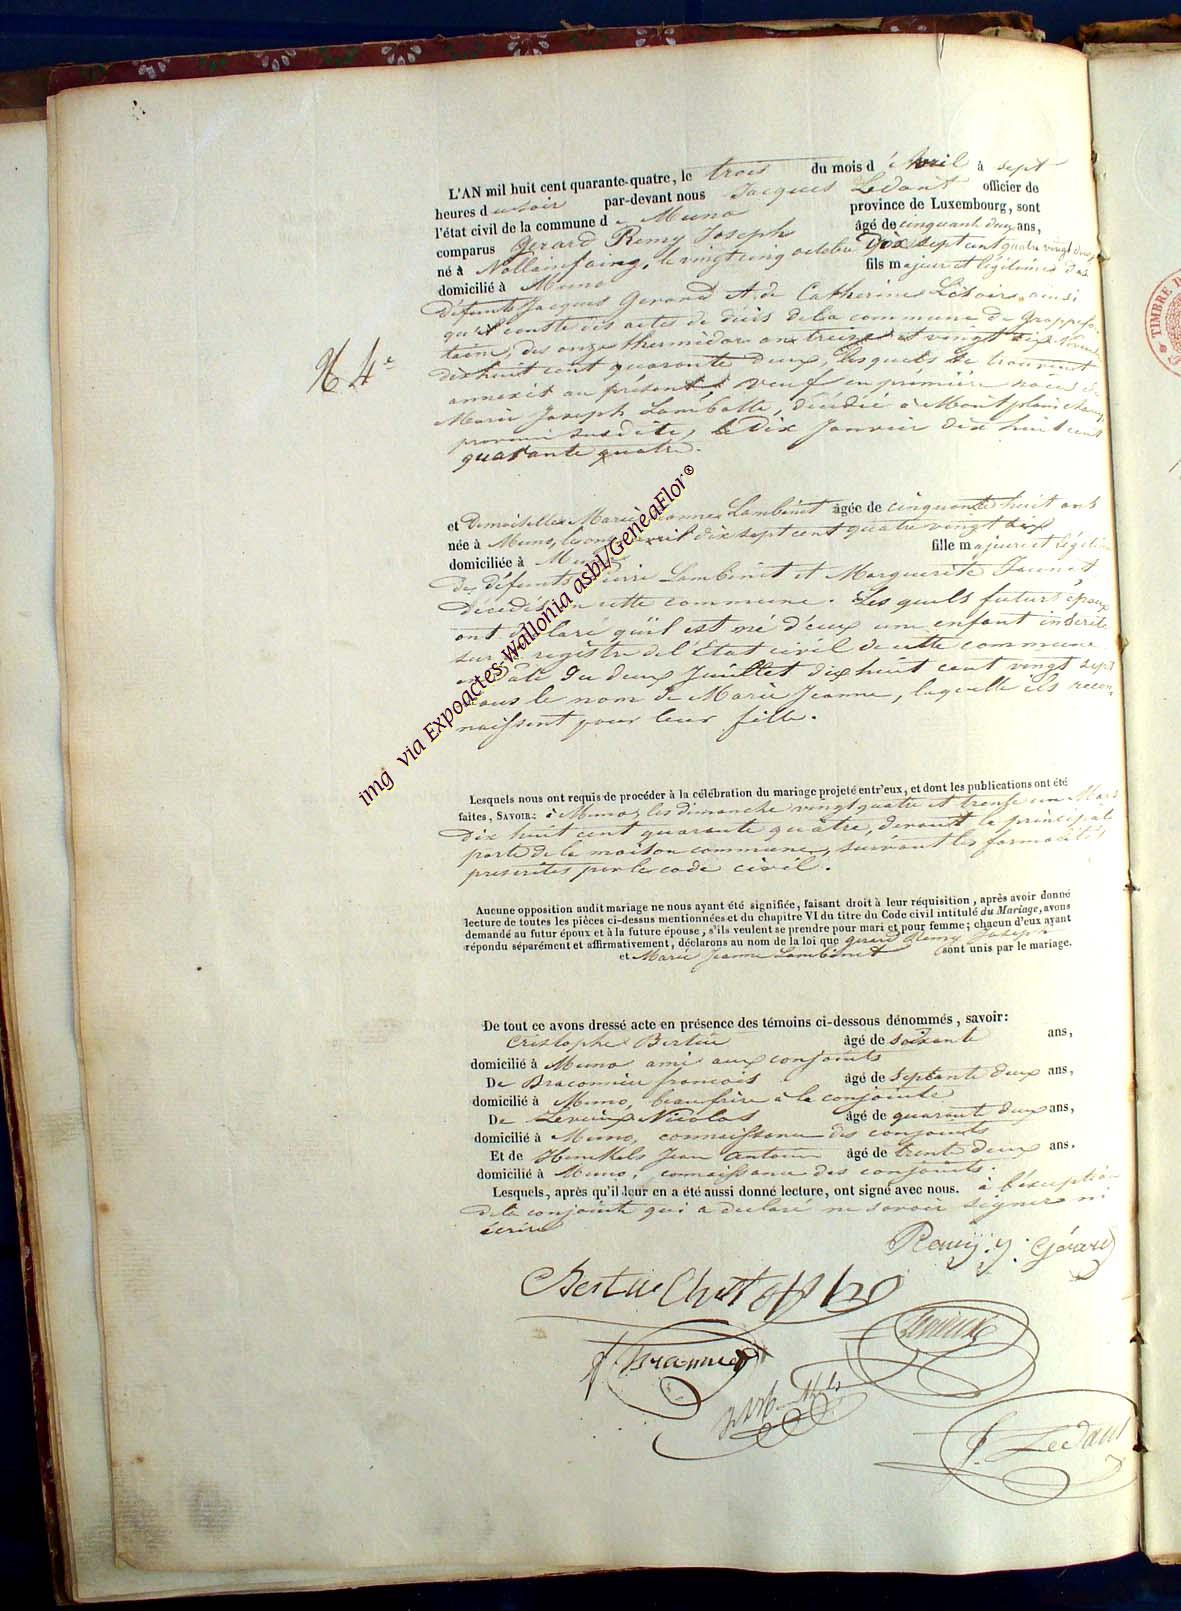 L'AN mil huit cent quarante-quatre, le trois du mois d'Avril à sept
heures du soir par-devant nous Jacques Ledant officier de
l'état civil de la commune de Muno province de Luxembourg, sont
comparus Gerard Remy Joseph âgé de cinquante deux ans,
né à Nollainfaing, le vingt cinq octobre dix sept cent quatre vingt onze
domicilié à Muno fils majeur et légitime des
défunts Jacques Gerard et de Catherine Lésoir, ainsi
qu'il conste des actes de décès de la commune de Grappefon
taine, des onze thermidor an treize et vingt six
dix huit cent quarante deux, lesquels se trouvent
annexés au présent. veuf en première noces de
Marie Joseph Lambotte, décédée à Montplainchamp,
province susdite, le dix Janvier dix huit cent
quarante quatre.
N 4e
et Demoiselle Marie Jeanne Lambinet âgée de cinquante huit ans
née à Muno, le onze avril dix sept cent quatre vingt six
domiciliée à Muno fille majeure et légitime
de défunts Pierre Lambinet et Marguerite Jaunet
décédés en cette commune. Lesquels futurs époux
ont déclaré qu'il est né d'eux une enfant inscrite
sur le registre de l'état civil de cette commune
en date du deux Juillet dix huit cent vingt sept
sous le nom de Marie Jeanne, laquelle ils recon-
naissent pour leur fille.
img via Expoactes-Wallonia asbl/GenèaFlor®
Lesquels nous ont requis de procéder à la célébration du mariage projeté entr'eux, et dont les publications ont été
faites, SAVOIR: à Muno, les dimanche vingt quatre et trente un Mars
dix huit cent quarante quatre, devant la principale
porte de la maison commune, suivant les formalités
prescrites par le code civil.
Aucune opposition audit mariage ne nous ayant été signifiée, faisant droit à leur réquisition, après avoir donné
lecture de toutes les pièces ci-dessus mentionnées et du chapitre VI du titre du Code civil intitulé du Mariage, avons
demandé au futur époux et à la future épouse, s'ils veulent se prendre pour mari et pour femme; chacun d'eux ayant
répondu séparément et affirmativement, déclarons au nom de la loi que Gerard Remy Joseph
et Marie Jeanne Lambinet sont unis par le mariage.
De tout ce avons dressé acte en présence des témoins ci-dessous dénommés, savoir:
Cristophe Bertue âgé de soixante ans,
domicilié à Muno ami aux conjoints
De Braconnier françois âgé de septante deux ans,
domicilié à Muno, beau frère à la conjointe
De Lerieux Nicolas âgé de quarante deux ans,
domicilié à Muno, connaissance des conjoints
Et de Jean Antoine âgé de trente deux ans.
domicilié à Muno, connaissance des conjoints.
Lesquels, après qu'il leur en a été aussi donné lecture, ont signé avec nous. à l'exception
de la conjointe qui a déclaré ne savoir signer ni
écrire
Remy. J. Gérard
Bertue Christophe
Lerieux
f. Braconnier
J. Ledant
TIMBRE